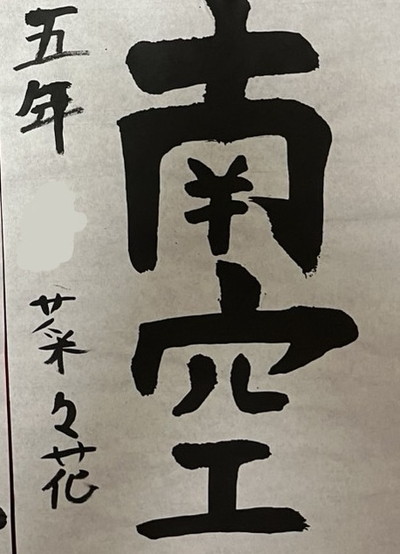 南空
五年 菜々花